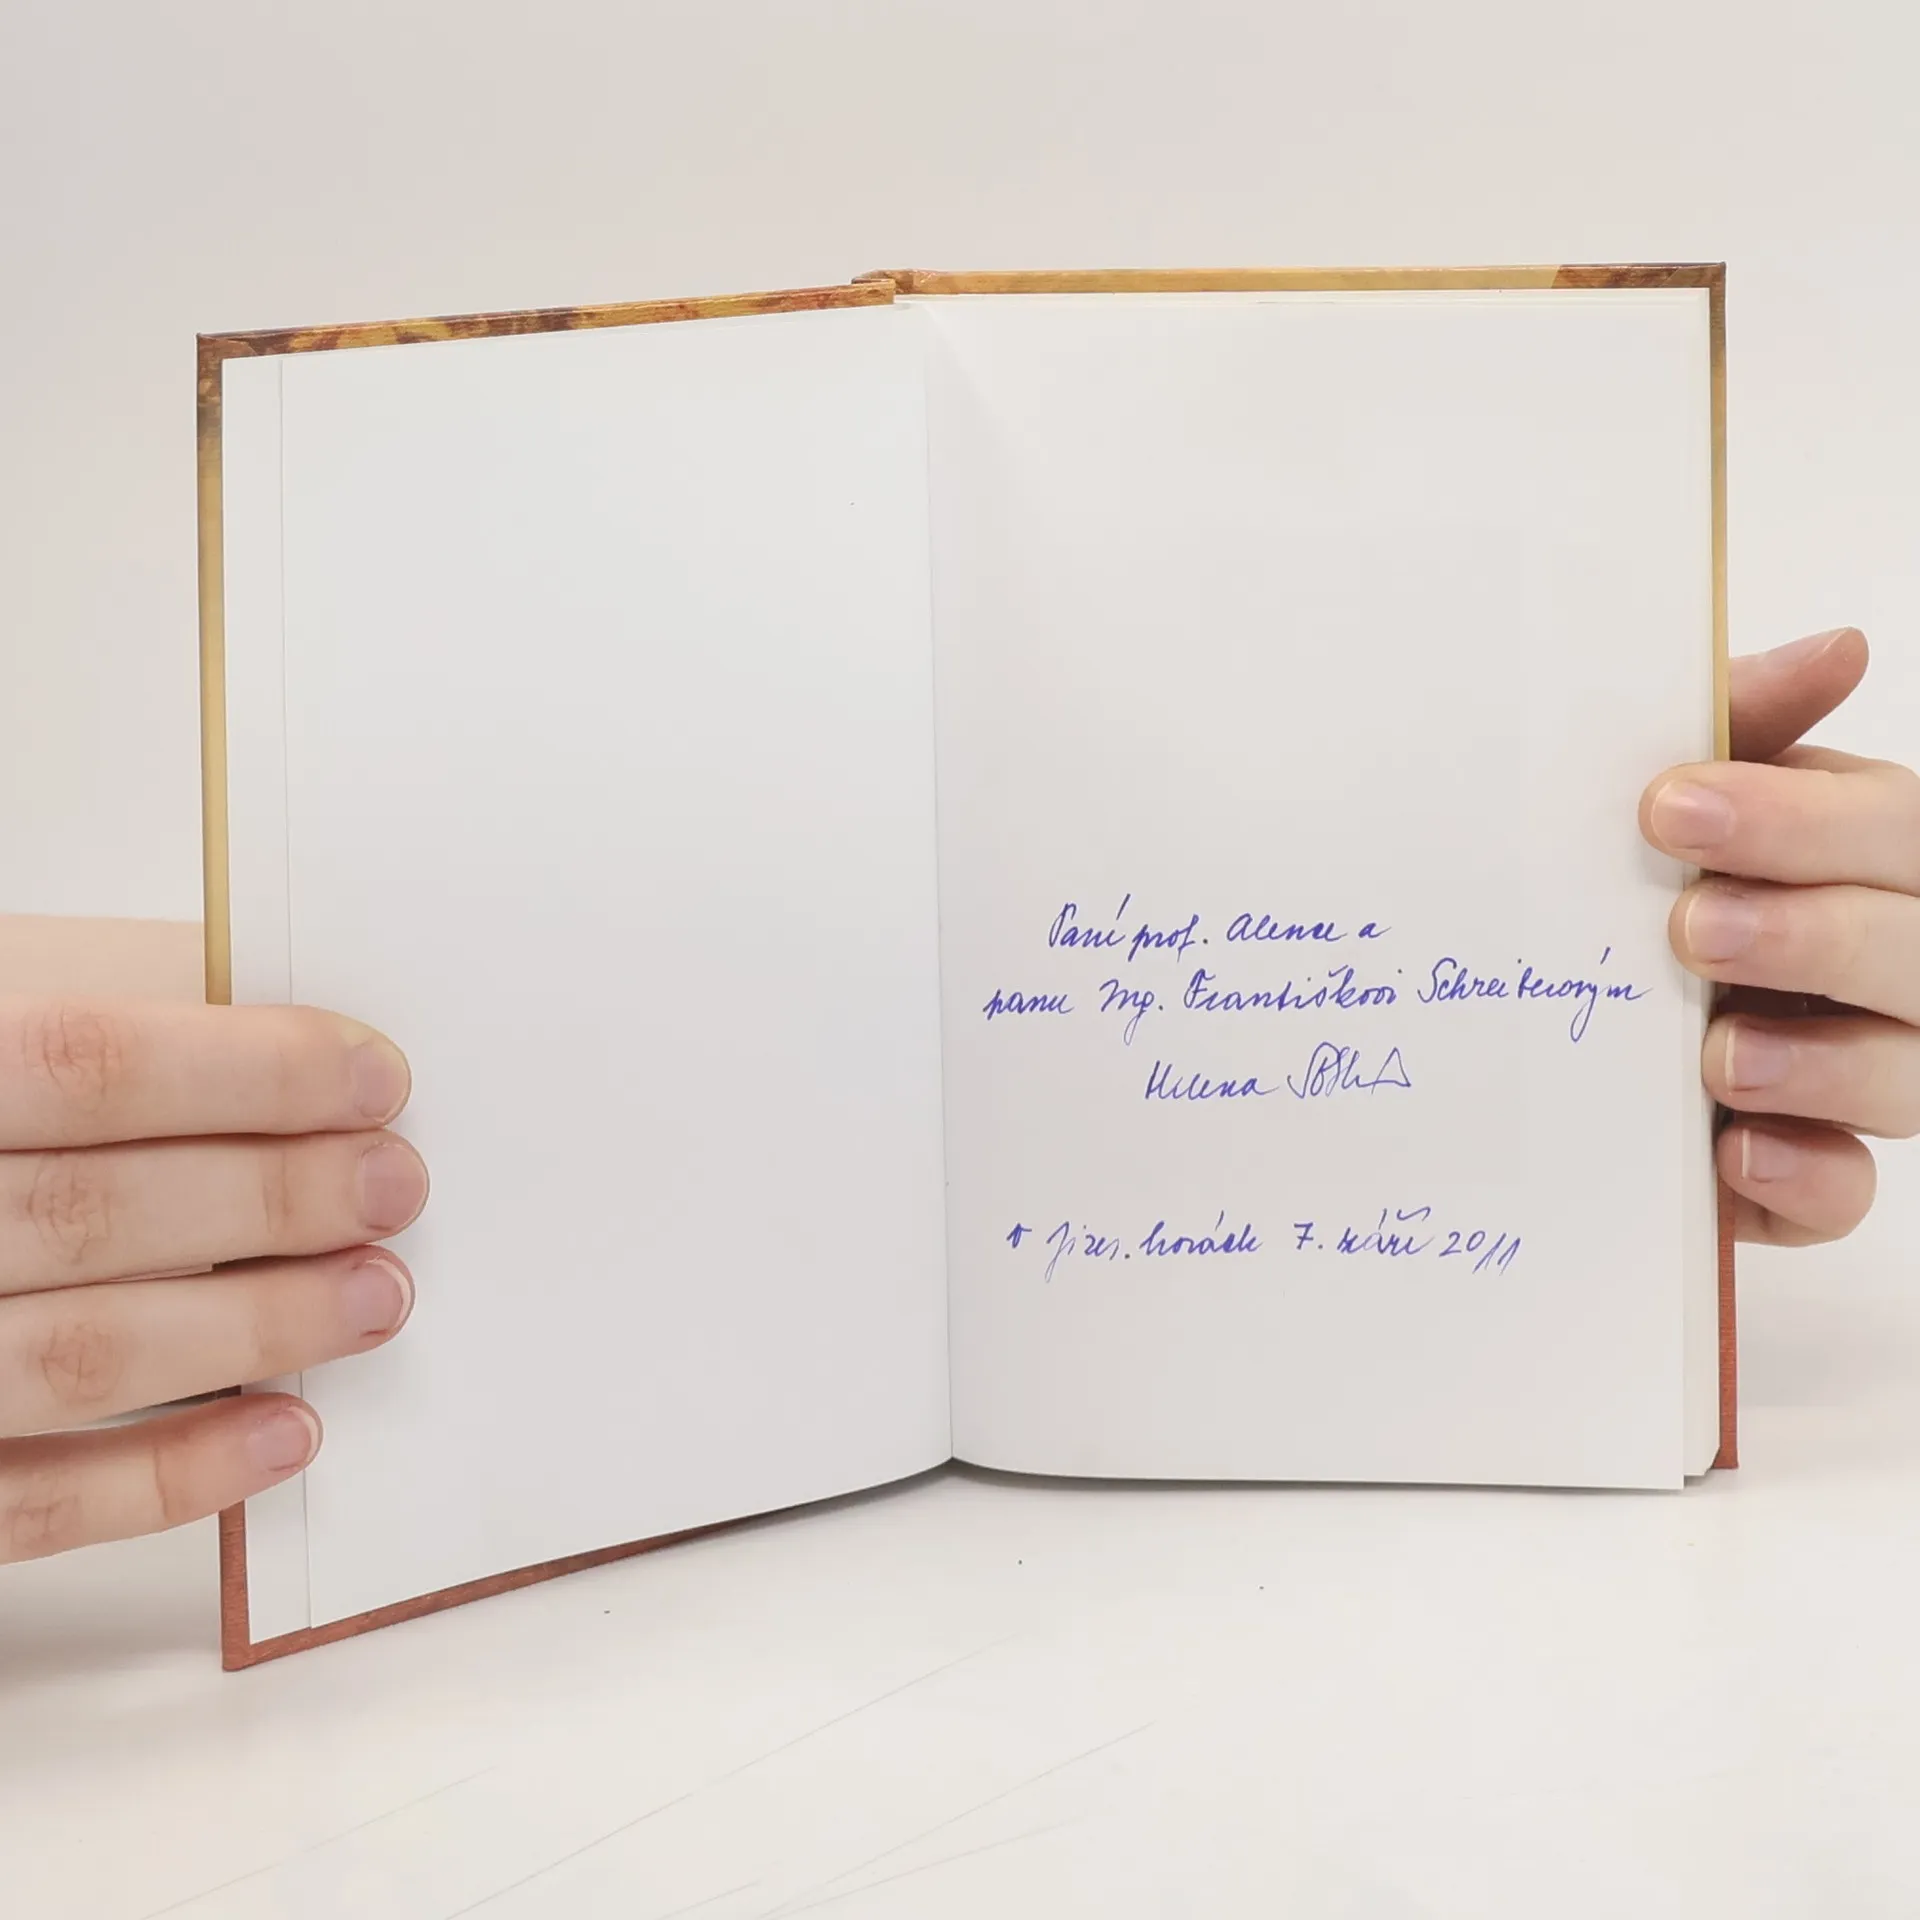 Paní prof. Alence a
panu Ing. Františkovi Schreiberovým
Helena
v Jizer. horách 7. září 2011